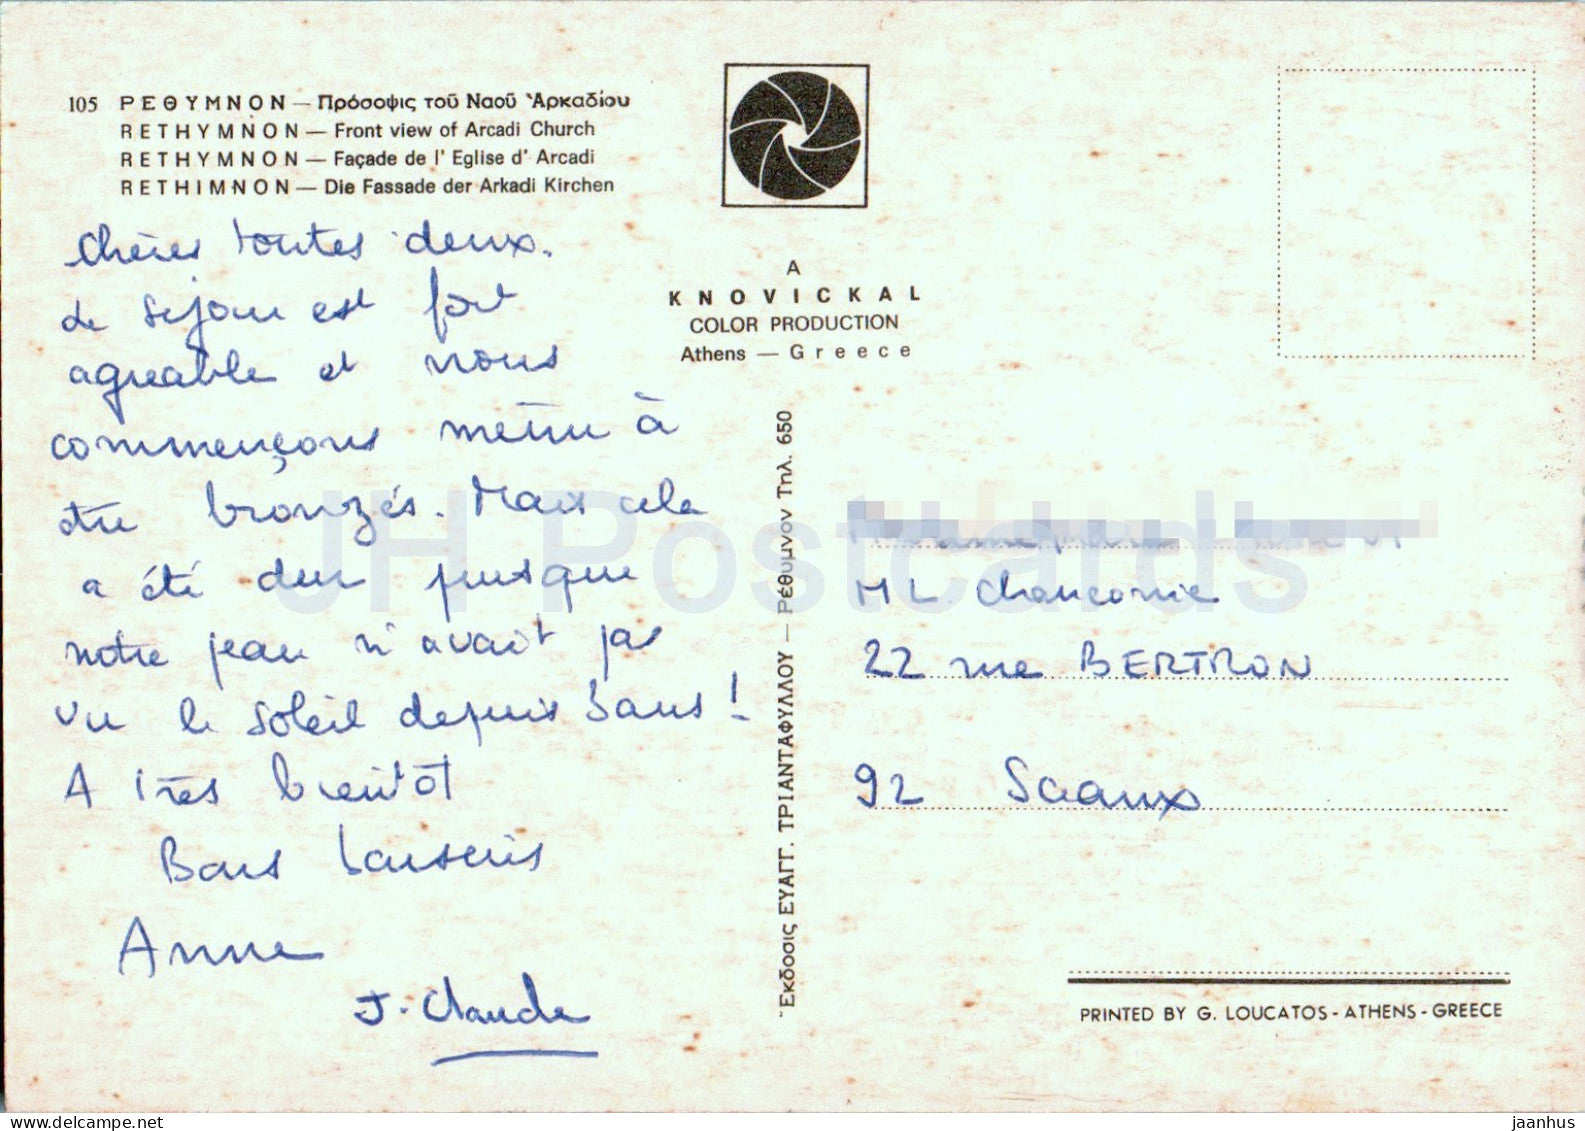 105 ΡΕΘΥΜΝΟΝ — Πρόσοψις τοῦ Ναοῦ Ἀρκαδίου
RETHYMNON — Front view of Arcadi Church
RETHYMNON — Façade de l' Eglise d' Arcadi
RETHIMNON — Die Fassade der Arkadi Kirchen
Chères toutes deux.
Le séjour est fort
agreable et nous
commençons même à
être bronzés. Mais cela
a été dur puisque
notre peau n'avait pas
vu le soleil depuis 3 ans !
A très bientôt
Bons baisers
Anne
J. Claude
A
KNOVICKAL
COLOR PRODUCTION
Athens — Greece
Ἔκδοσις ΕΥΑΓΓ. ΤΡΙΑΝΤΑΦΥΛΛΟΥ — Ρέθυμνον Τηλ. 650
ML
22 rue BERTRON
92 Sceaux
PRINTED BY G. LOUCATOS - ATHENS - GREECE
JH Postcards
www.delcampe.net
jaanhus